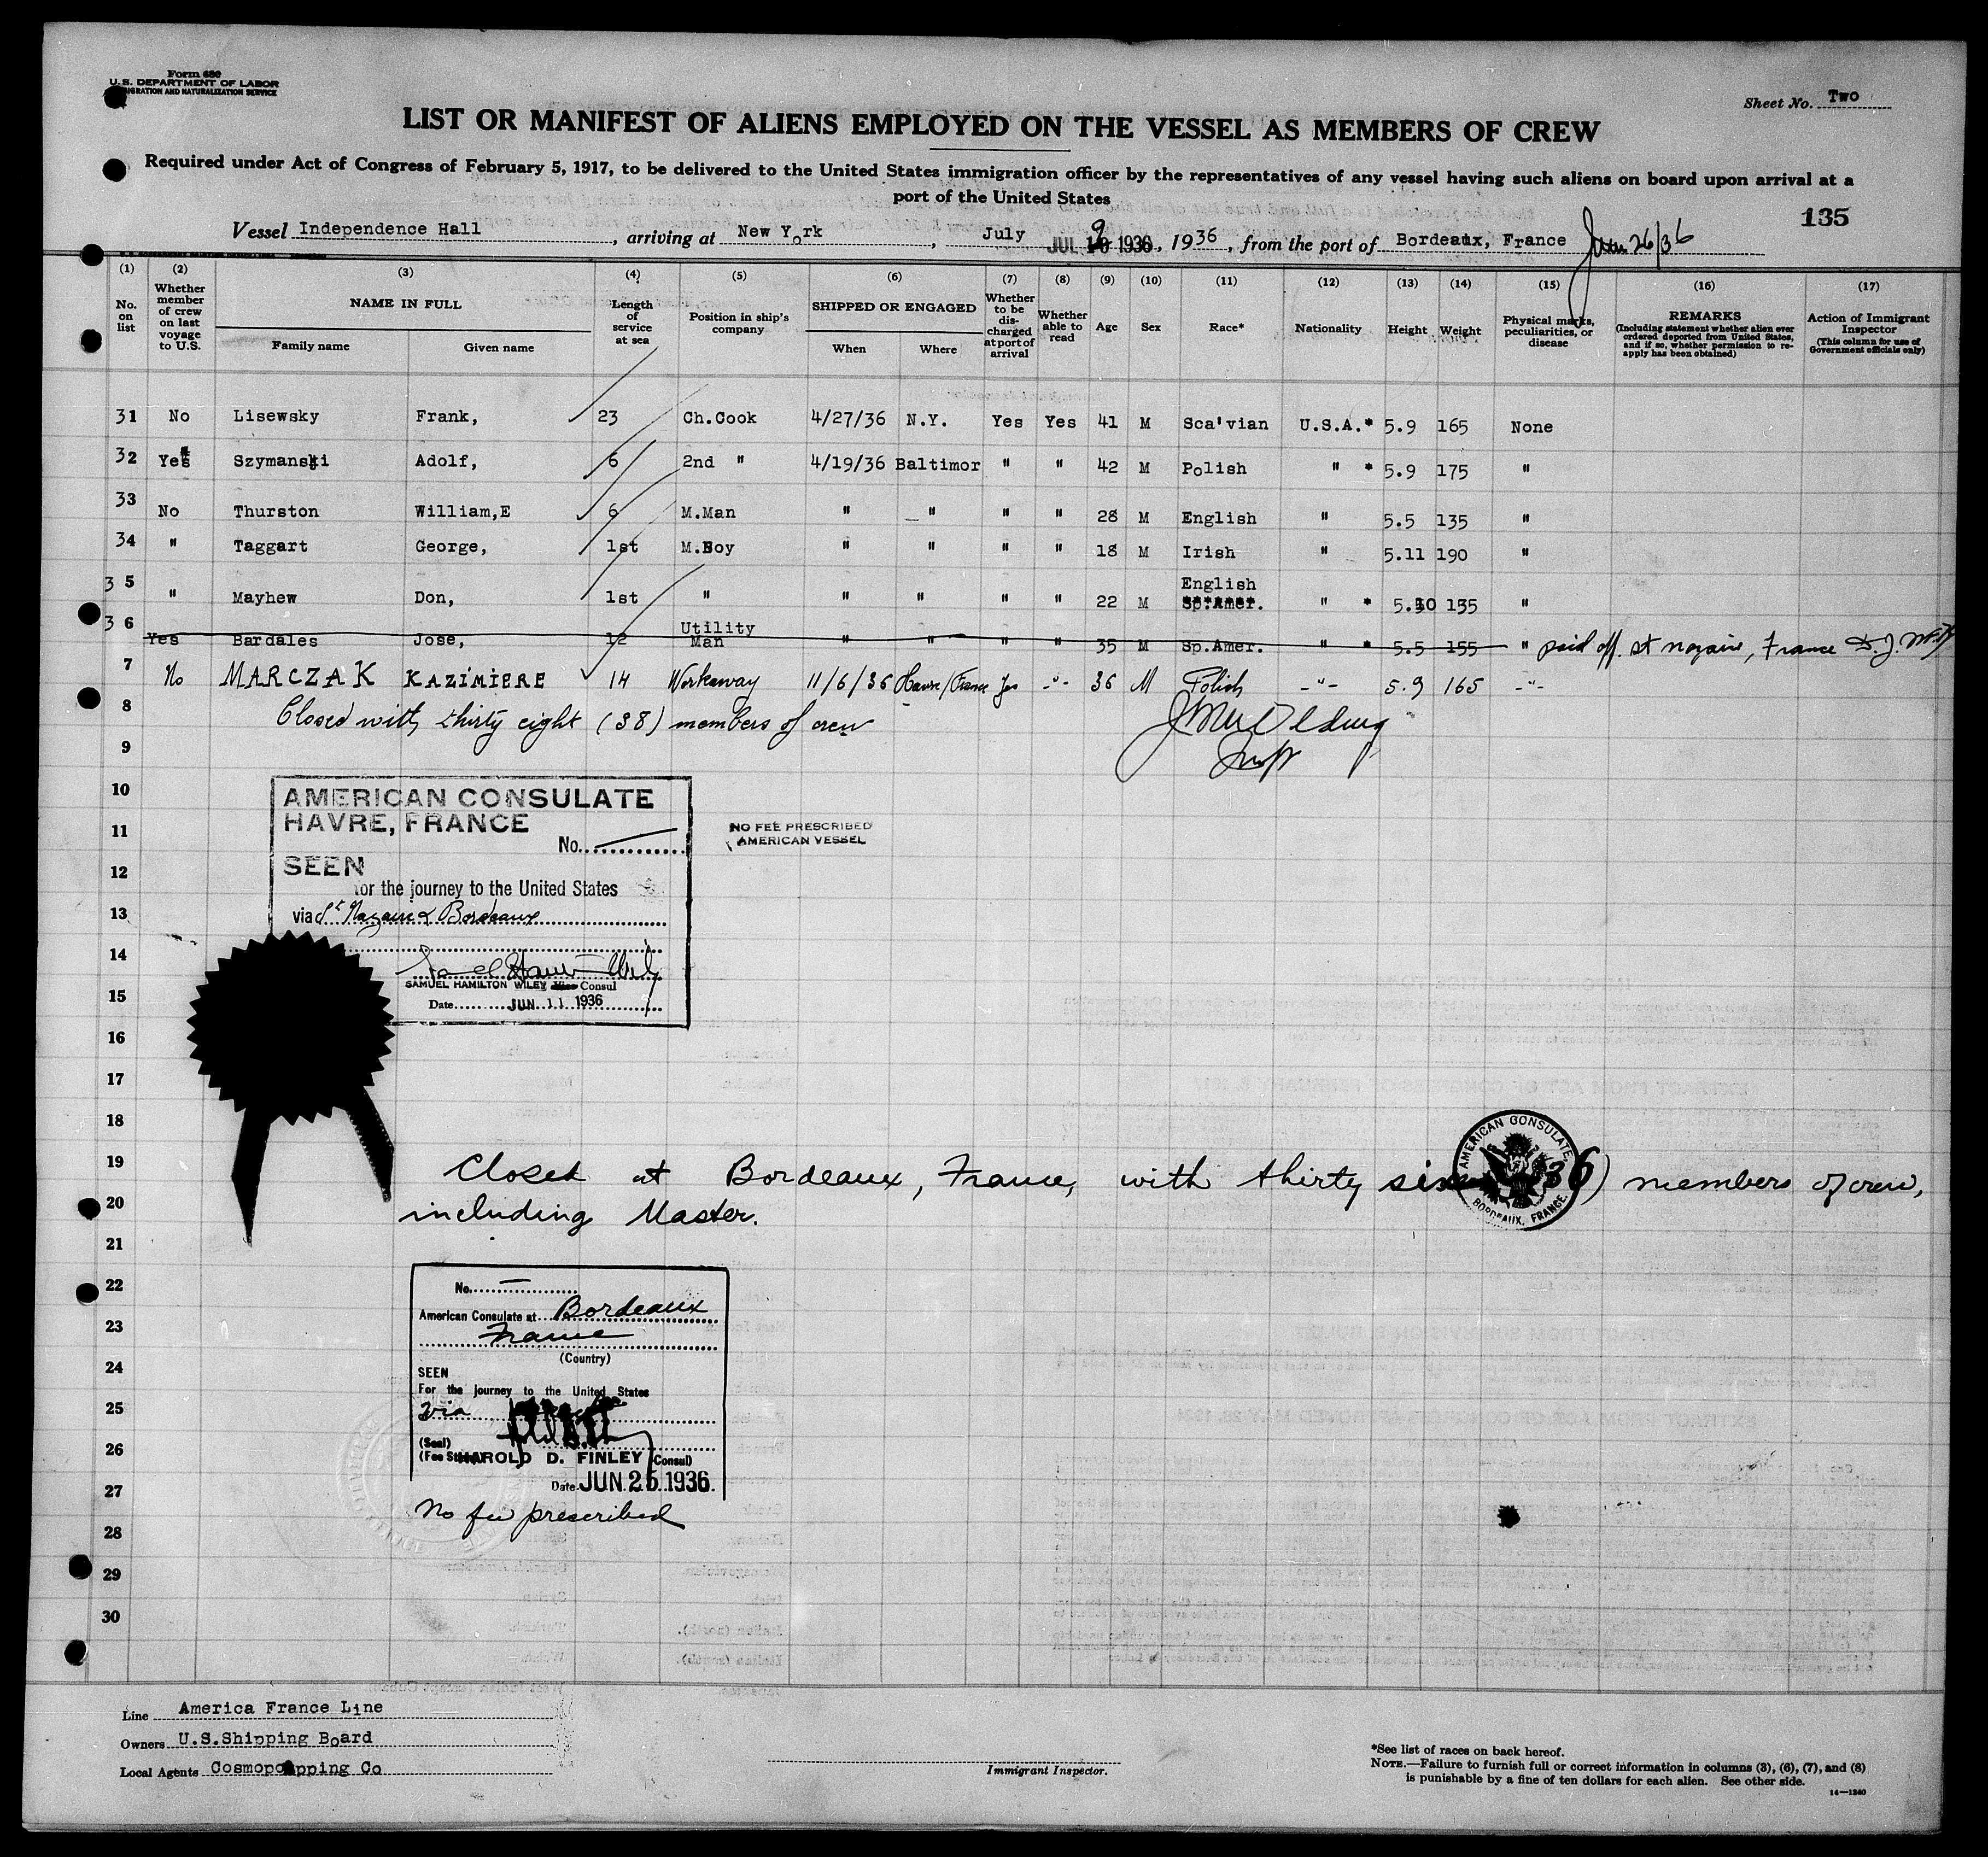 Form 680
U.S. DEPARTMENT OF LABOR
IMMIGRATION AND NATURALIZATION SERVICE
Sheet No. Two
LIST OR MANIFEST OF ALIENS EMPLOYED ON THE VESSEL AS MEMBERS OF CREW
Required under Act of Congress of February 5, 1917, to be delivered to the United States immigration officer by the representatives of any vessel having such aliens on board upon arrival at a
port of the United States
135
Vessel Independence Hall, arriving at New York, July 9 JUL 10 1936, 1936, from the port of Bordeaux, France June 26/36
(1) (2) (3) (4) (5) (6) (7) (8) (9) (10) (11) (12) (13) (14) (15) (16) (17)
No. on list
Whether member of crew on last voyage to U.S.
NAME IN FULL
Family name Given name
Length of service at sea
Position in ship's company
SHIPPED OR ENGAGED
When Where
Whether to be discharged at port of arrival
Whether able to read
Age
Sex
Race*
Nationality
Height
Weight
Physical marks, peculiarities, or disease
REMARKS
(Including statement whether alien ever ordered deported from United States, and if so, whether permission to reapply has been obtained)
Action of Immigrant Inspector
(This column for use of Government officials only)
31 No Lisewsky Frank, 23 Ch.Cook 4/27/36 N.Y. Yes Yes 41 M Sca'vian U.S.A.* 5.9 165 None
32 Yes Szymanski Adolf, 6 2nd " 4/19/36 Baltimor " " 42 M Polish " * 5.9 175 "
33 No Thurston William,E 6 M.Man " " " " 28 M English " 5.5 135 "
34 " Taggart George, 1st M.Boy " " " " 18 M Irish " 5.11 190 "
35 " Mayhew Don, 1st " " " " " 22 M English Sp.Amer. " * 5.10 135 "
36 Yes Bardales Jose, 12 Utility Man " " " " 35 M Sp.Amer. " * 5.5 155 " paid off. St nazaire, France
7 No MARCZAK KAZIMIERE 14 Workaway 11/6/36 Havre/France Yes -"- 36 M Polish -"- 5.9 165 -"-
8 Closed with thirty eight (38) members of crew
9
10
11
12
13
14
15
16
17
18
19
20
21
22
23
24
25
26
27
28
29
30
AMERICAN CONSULATE
HAVRE, FRANCE
No.
SEEN
for the journey to the United States
via St Nazaire & Bordeaux
SAMUEL HAMILTON WILEY Vice Consul
Date JUN 11 1936
NO FEE PRESCRIBED
AMERICAN VESSEL
Closed at Bordeaux, France, with thirty six (36) members of crew,
including Master.
AMERICAN CONSULATE,
BORDEAUX, FRANCE.
No.
American Consulate at Bordeaux
France
(Country)
SEEN
For the journey to the United States
via
(Seal)
(Fee Stamp) HAROLD D. FINLEY Consul)
Date JUN 25 1936.
No fee prescribed
Line America France Line
Owners U.S.Shipping Board
Local Agents
Immigrant Inspector.
*See list of races on back hereof.
NOTE.—Failure to furnish full or correct information in columns (3), (6), (7), and (8)
is punishable by a fine of ten dollars for each alien. See other side.
14—1240